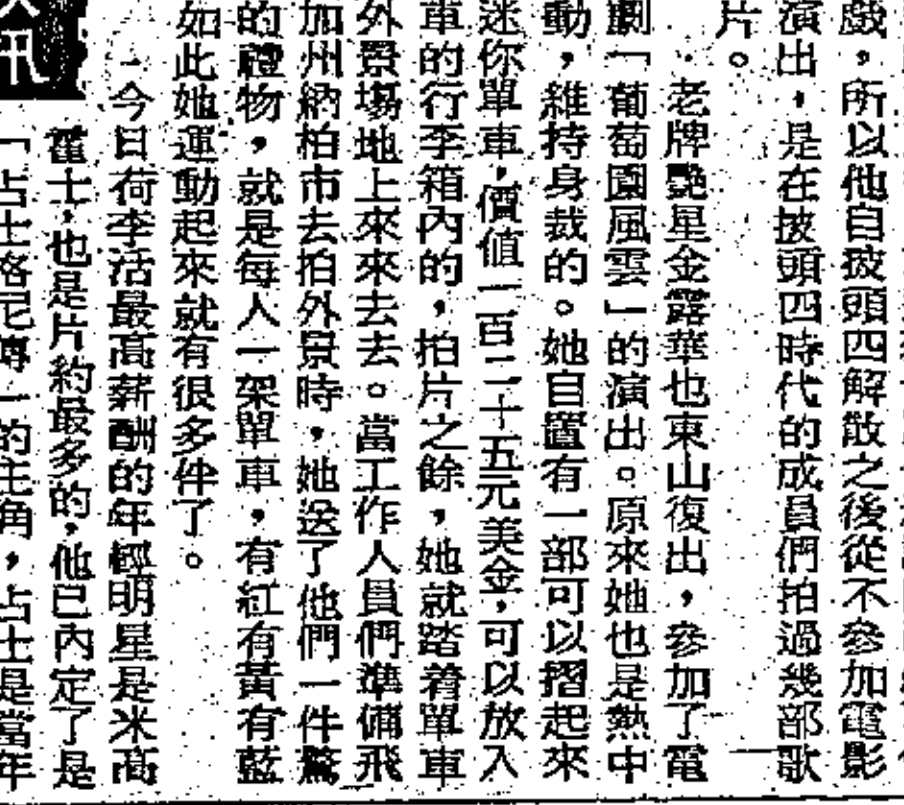 戲，所以他自披頭四解散之後從不參加電影
演出，是在披頭四時代的成員們拍過幾部歌
片。
·老牌艷星金露華也東山復出，參加了電
劇「葡萄園風雲」的演出。原來她也是熱中
動，維持身裁的。她自置有一部可以摺起來
迷你單車，價值一百二十五元美金，可以放入
車的行李箱內的，拍片之餘，她就踏着單車
外景場地上來來去去。當工作人員們準備飛
加州納柏市去拍外景時，她送了他們一件驚
的禮物，就是每人一架單車，有紅有黃有藍
如此她運動起來就有很多件了。
·今日荷李活最高薪酬的年輕明星是米高
霍士，也是片約最多的，他已內定了是
「占士格尼傳」的主角，占士是當年
訊